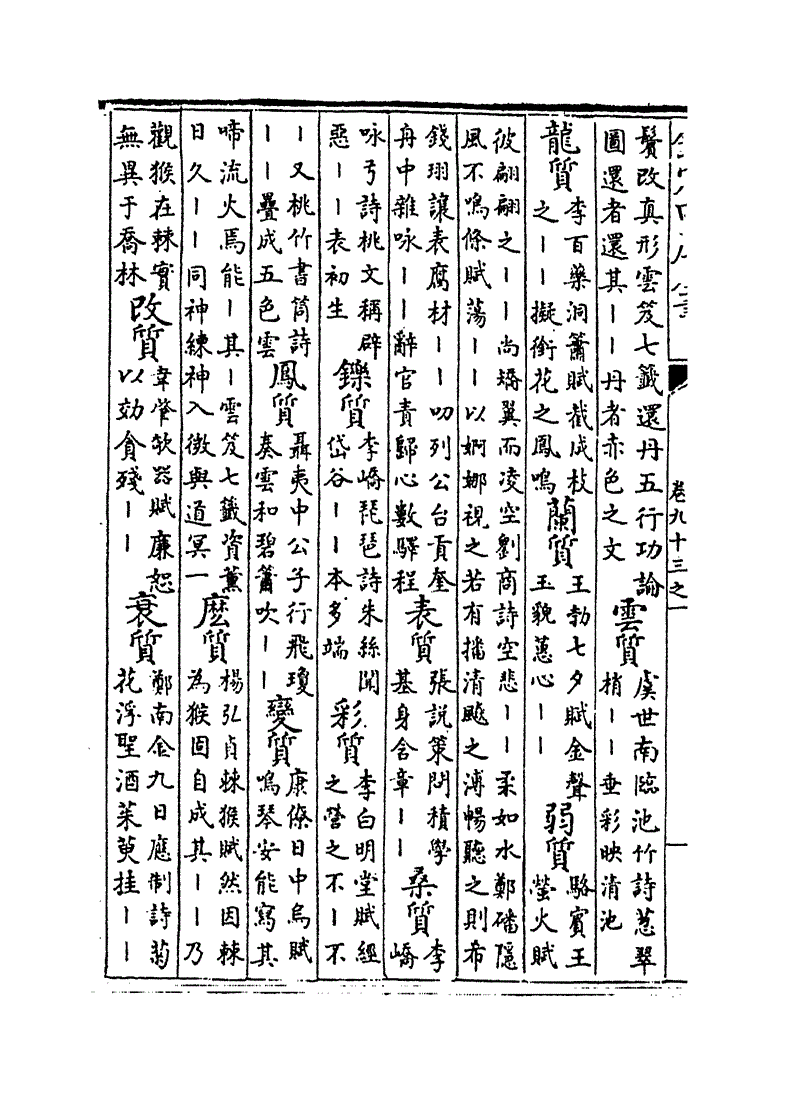 卷九十三之一
鬢改真形雲笈七籤還丹五行功論
圖還者還其丨丨丹者赤色之文
雲質
虞世南臨池竹詩葱翠
梢丨丨垂彩映清池
龍質
李百藥洞簫賦截成枝
之丨丨擬銜花之鳳鳴
蘭質
王勃七夕賦金聲
玉貌蕙心丨丨
弱質
駱賓王
螢火賦
彼翩翩之丨丨尚矯翼而凌空劉商詩空悲丨丨柔如水鄭磻隱
風不鳴條賦蕩丨丨以婀娜視之若有擋清飈之溥暢聽之則希
錢珝讓表腐材丨丨叨列公台貢奎
舟中雜咏丨丨辭官責歸心數驛程
表質
張說策問積學
基身含章丨丨
桑質
李
嶠
咏弓詩桃文稱辟
惡丨丨表初生
鑠質
李嶠琵琶詩朱絲聞
岱谷丨丨本多端
彩質
李白明堂賦經
之營之不丨不
丨又桃竹書筒詩
丨丨疊成五色雲
鳳質
聶夷中公子行飛瓊
奏雲和碧簫吹丨丨
變質
康僚日中烏賦
鳴琴安能寫其
啼流火焉能丨其丨雲笈七籤資薰
日久丨丨同神練神入微與道冥一
麽質
楊弘貞棘猴賦然因棘
為猴固自成其丨丨乃
觀猴在棘實
無異于喬林
改質
韋肇欹器賦廉恕
以効貪殘丨丨
衰質
鄭南金九日應制詩菊
花浮聖酒茱萸挂丨丨